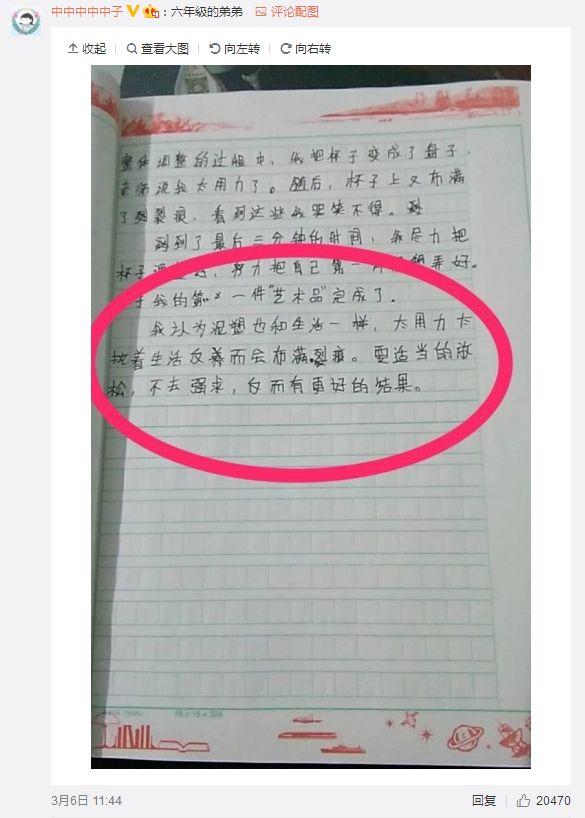 中中中中中子：六年级的弟弟 评论配图
收起 查看大图 向左转 向右转
整体调整的过程中，我把杯子变成了盘子，
老师说我太用力了。随后，杯子上又布满
了裂痕，看到这些我哭笑不得。
到了最后三分钟的时间，我尽力把
杯子 好，努力把自己第一 弄好。
于我的第 一件"艺术品"完成了。
我认为泥塑也和生活一样，太用力太
执着生活反着而会布满裂痕。要适当的放
松，不去强求，反而有更好的结果。
3月6日 11:44 回复 20470